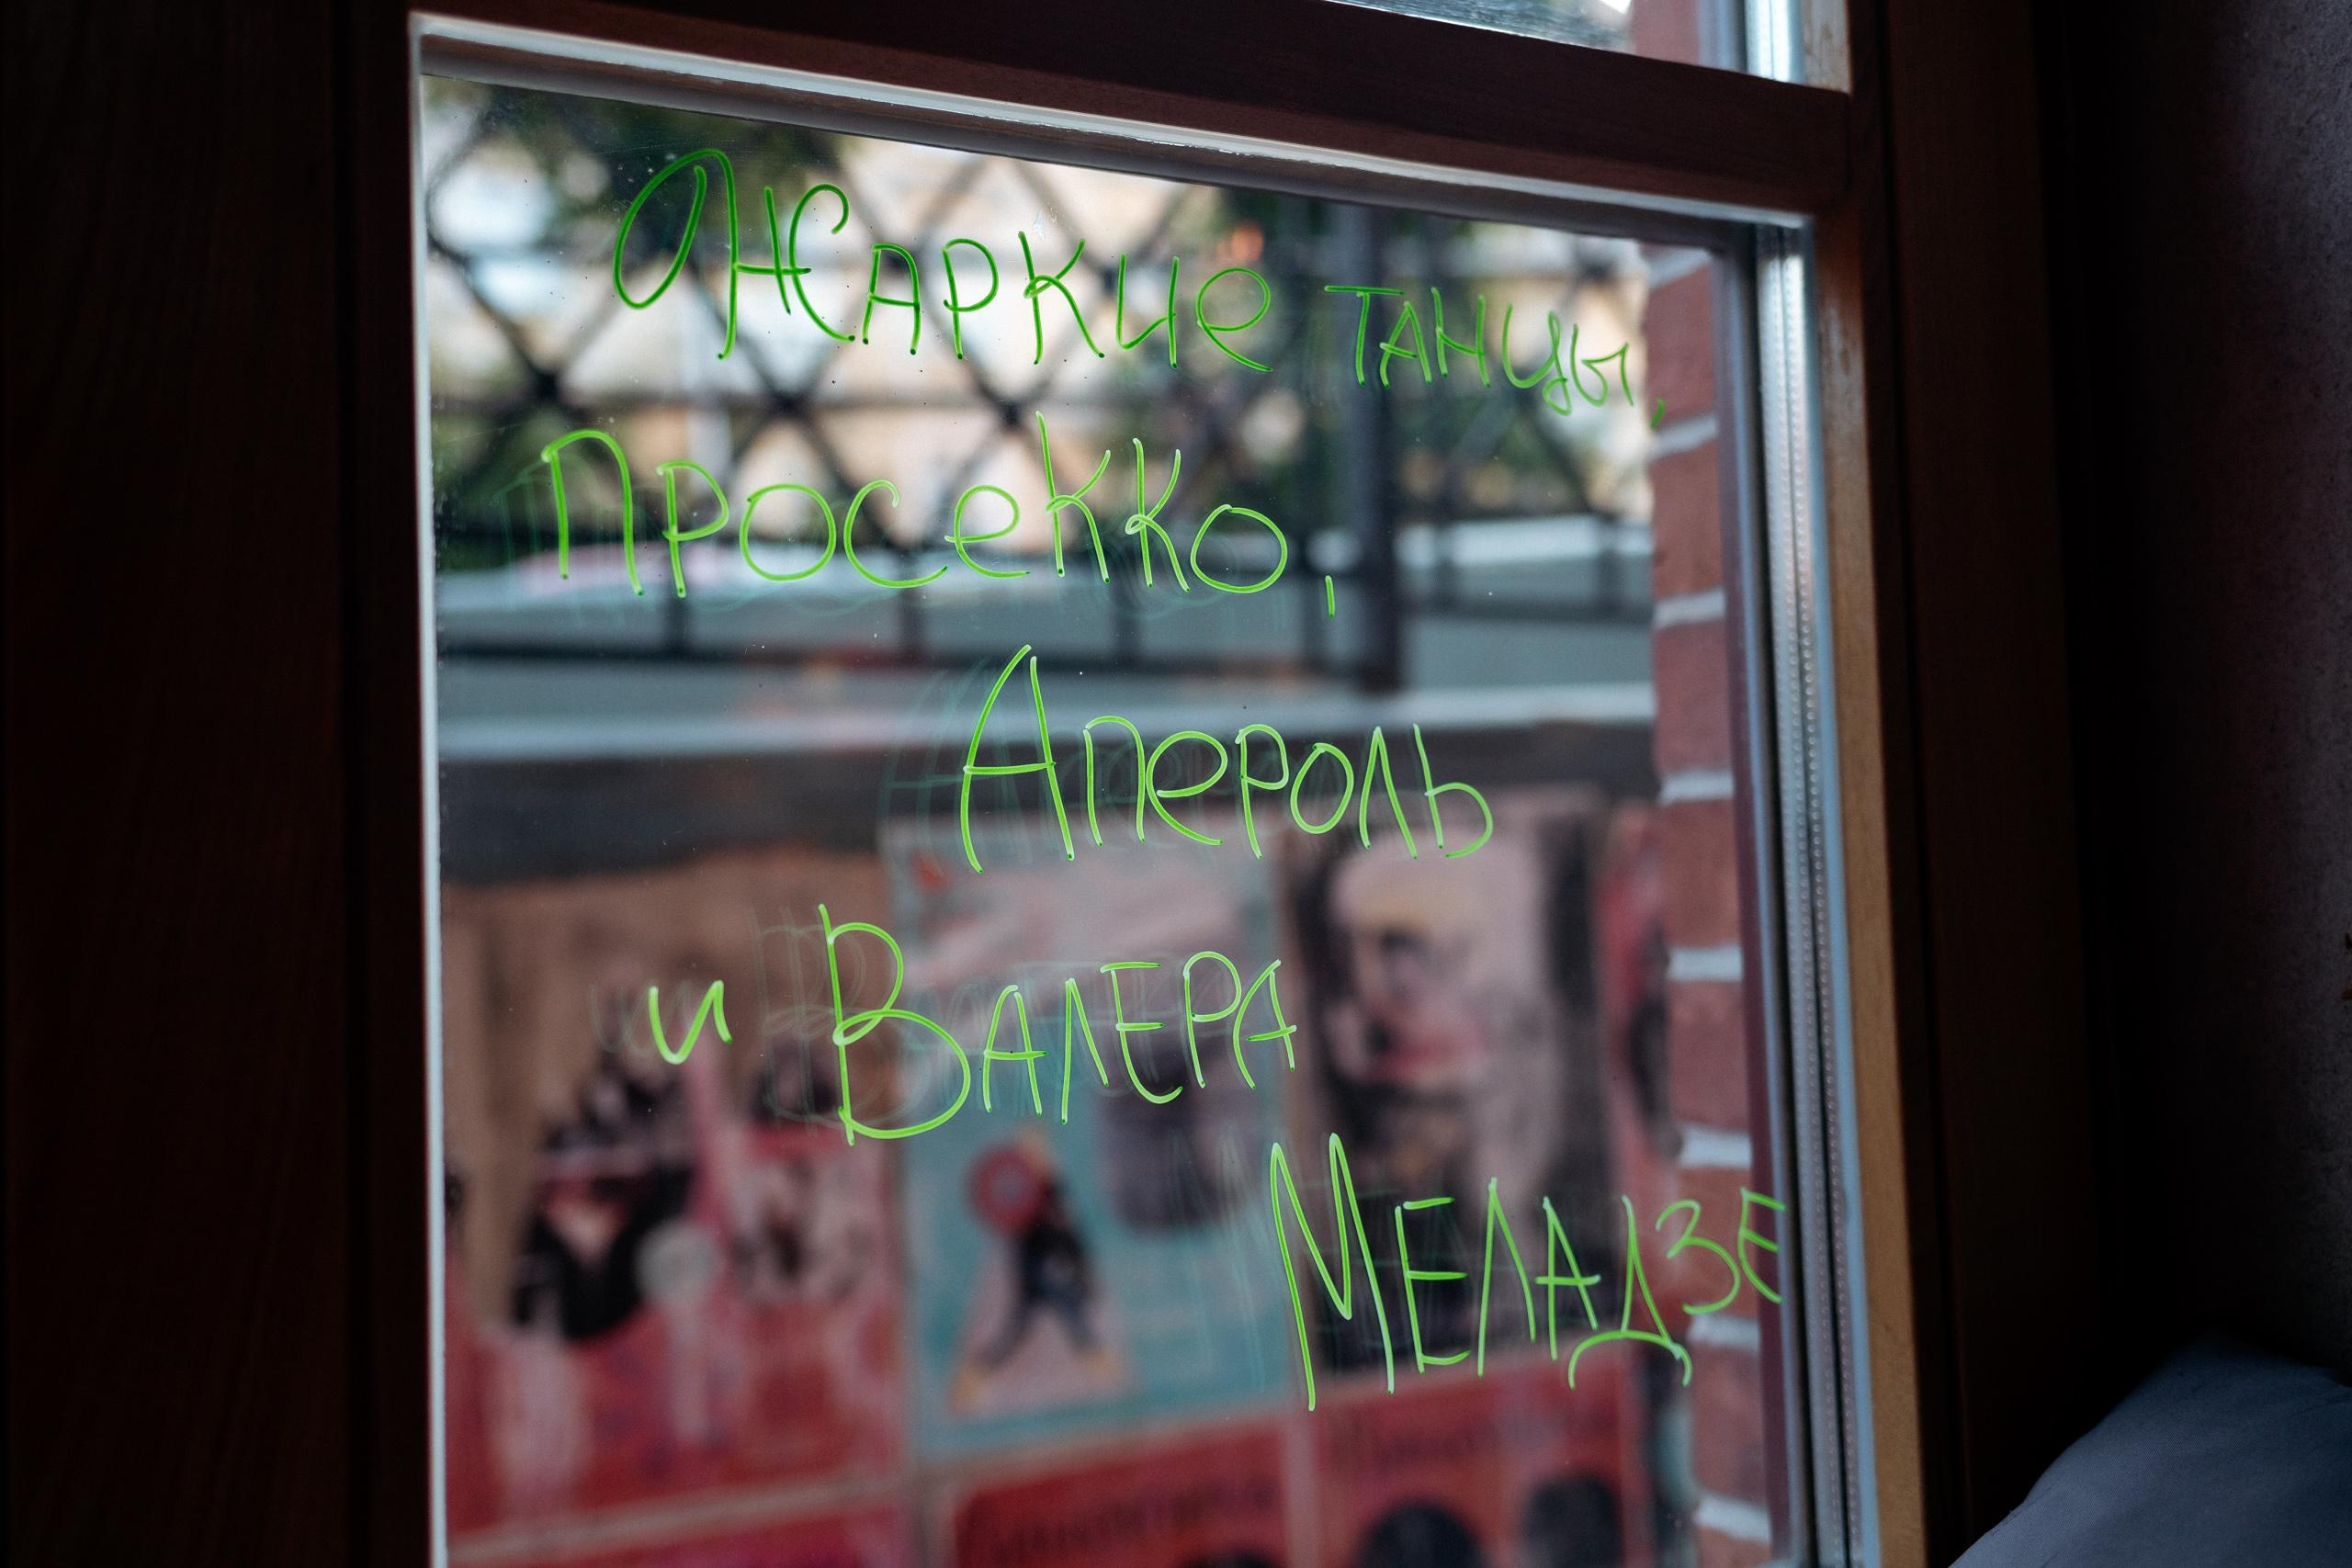 Жаркие танцы,
Просекко,
Апероль
и Валера
Меладзе